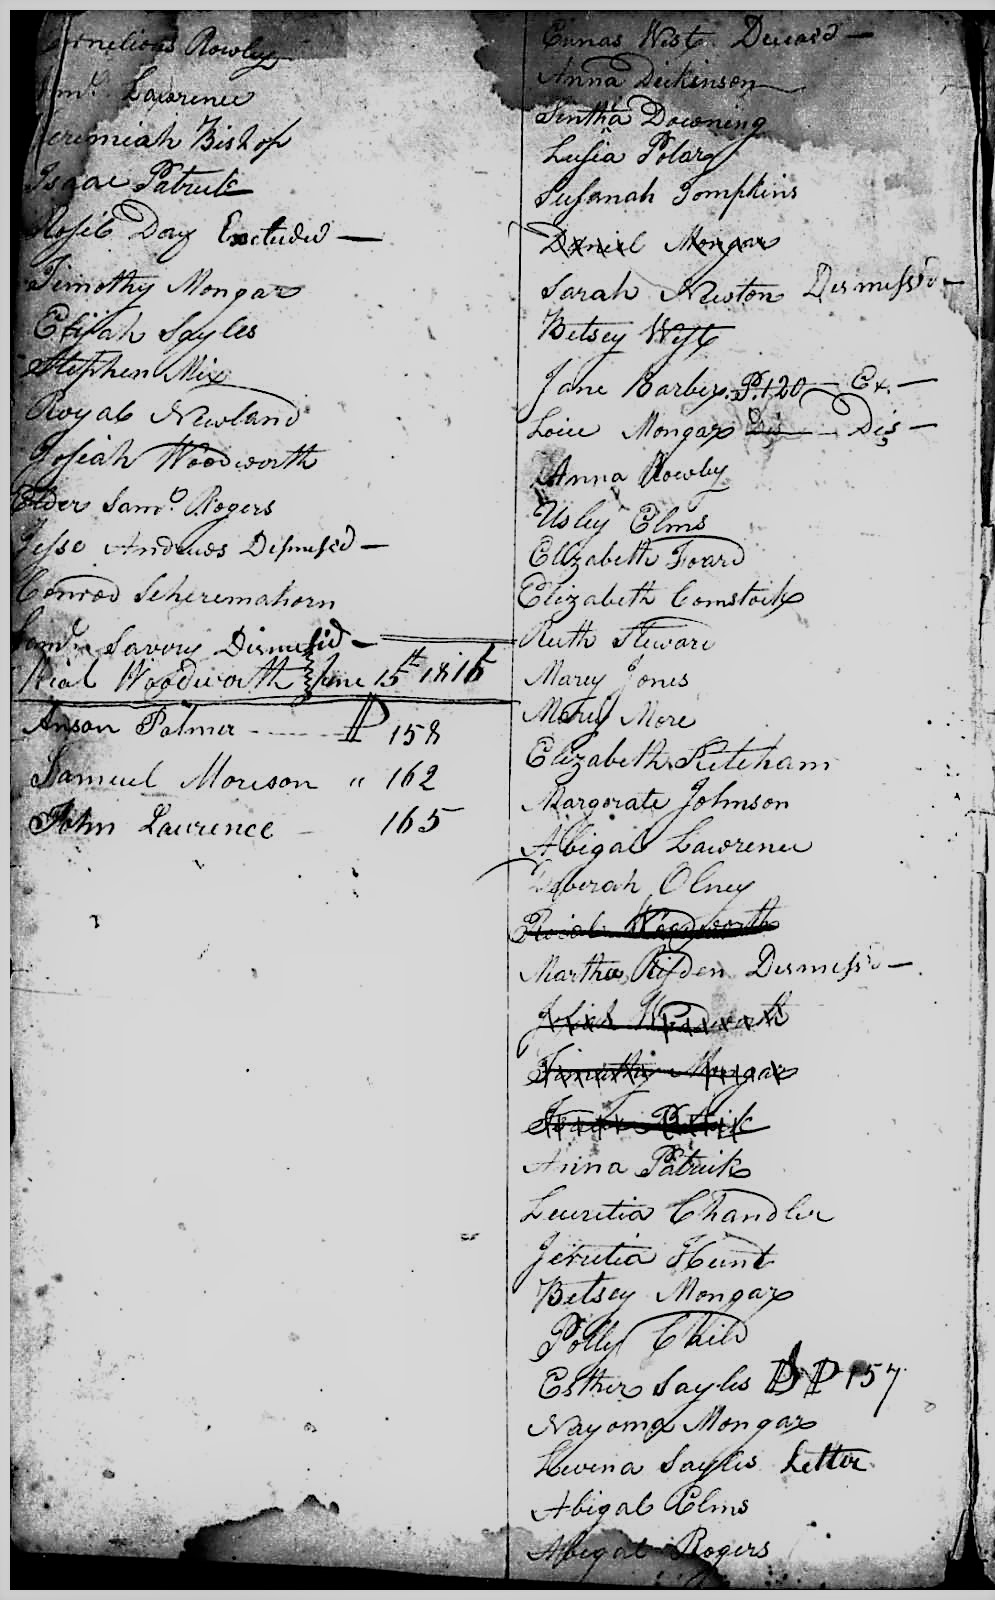 Cornelious Rowley
Samˡ Lawrence
Jeremiah Bishop
Isaac Patrick
Rosil Day Excluded —
Timothy Mongar
Elijah Sayles
Stephen Mix
Royal Newland
Josiah Woodworth
Elder Samˡ Rogers
Jesse Andrews Dismissed —
Conrod Scheremahorn
Samˡ Savory Dismissid —
Rial Woodworth June 15th 1816
Anson Palmer - - - - P 158
Samuel Morison " 162
John Laurence - 165
Eunas West Deceasd —
Anna Dickinson
Sintha Downing
Lusia Polard
Susanah Tompkins
Daniel Mongar
Sarah Newton Dismissd —
Betsey West
Jane Barber P. 120 — Ex. —
Loice Mongar Dis — Dis —
Anna Rowley
Usley Elms
Elizabeth Foard
Elizabeth Comstock
Ruth Steward
Marey Jones
Marey More
Elizabeth Ketcham
Margerate Johnson
Abigal Lawrence
Deborah Olney
Rial Woodworth
Martha Risden Dismissd —
Josiah Woodworth
Timothy Mongar
Isaac Patrick
Anna Patrick
Lucretia Chandler
Jerutia Hunt
Betsey Mongar
Polly Child
Esther Sayles P 157
Nayoma Mongar
Levina Sayles Letter
Abigal Elms
Abigal Rogers